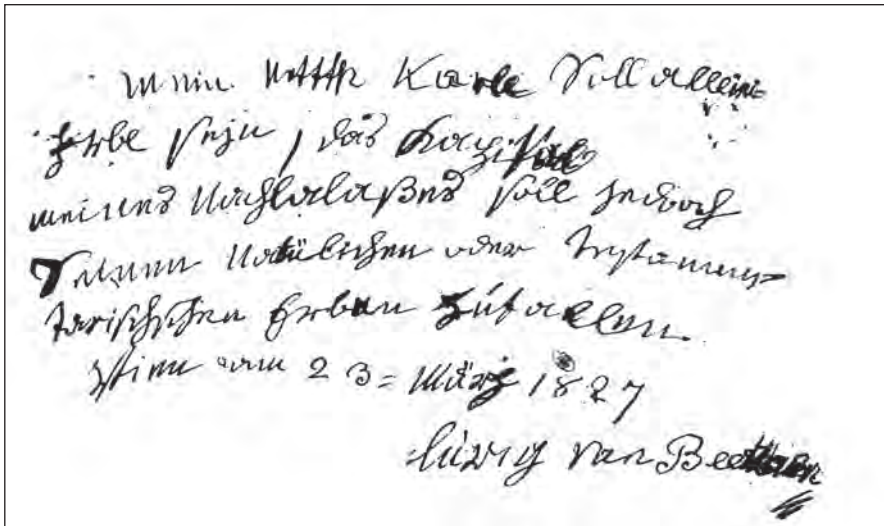 Mein Neffe Karl Soll alleini-
Erbe seyn, das Kapital
meines Nachlalaßes soll jedoch
Seinen Natülichen oder Testamen-
tarischschen Erben zufallen.
Wien am 23= März 1827
luwig van Beethoven